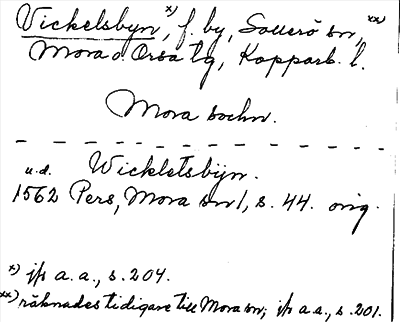 Vickelsbyn x), f. by, Sollerö sn, xx)
Mora o. Orsa tg, Kopparb. l.
Mora socken.
u.d. Wickletsbÿn.
1562 Pers, Mora sn 1, s. 44. orig.
x) jfr a. a., s. 204.
xx) räknades tidigare till Mora sn; jfr a a., s. 201.